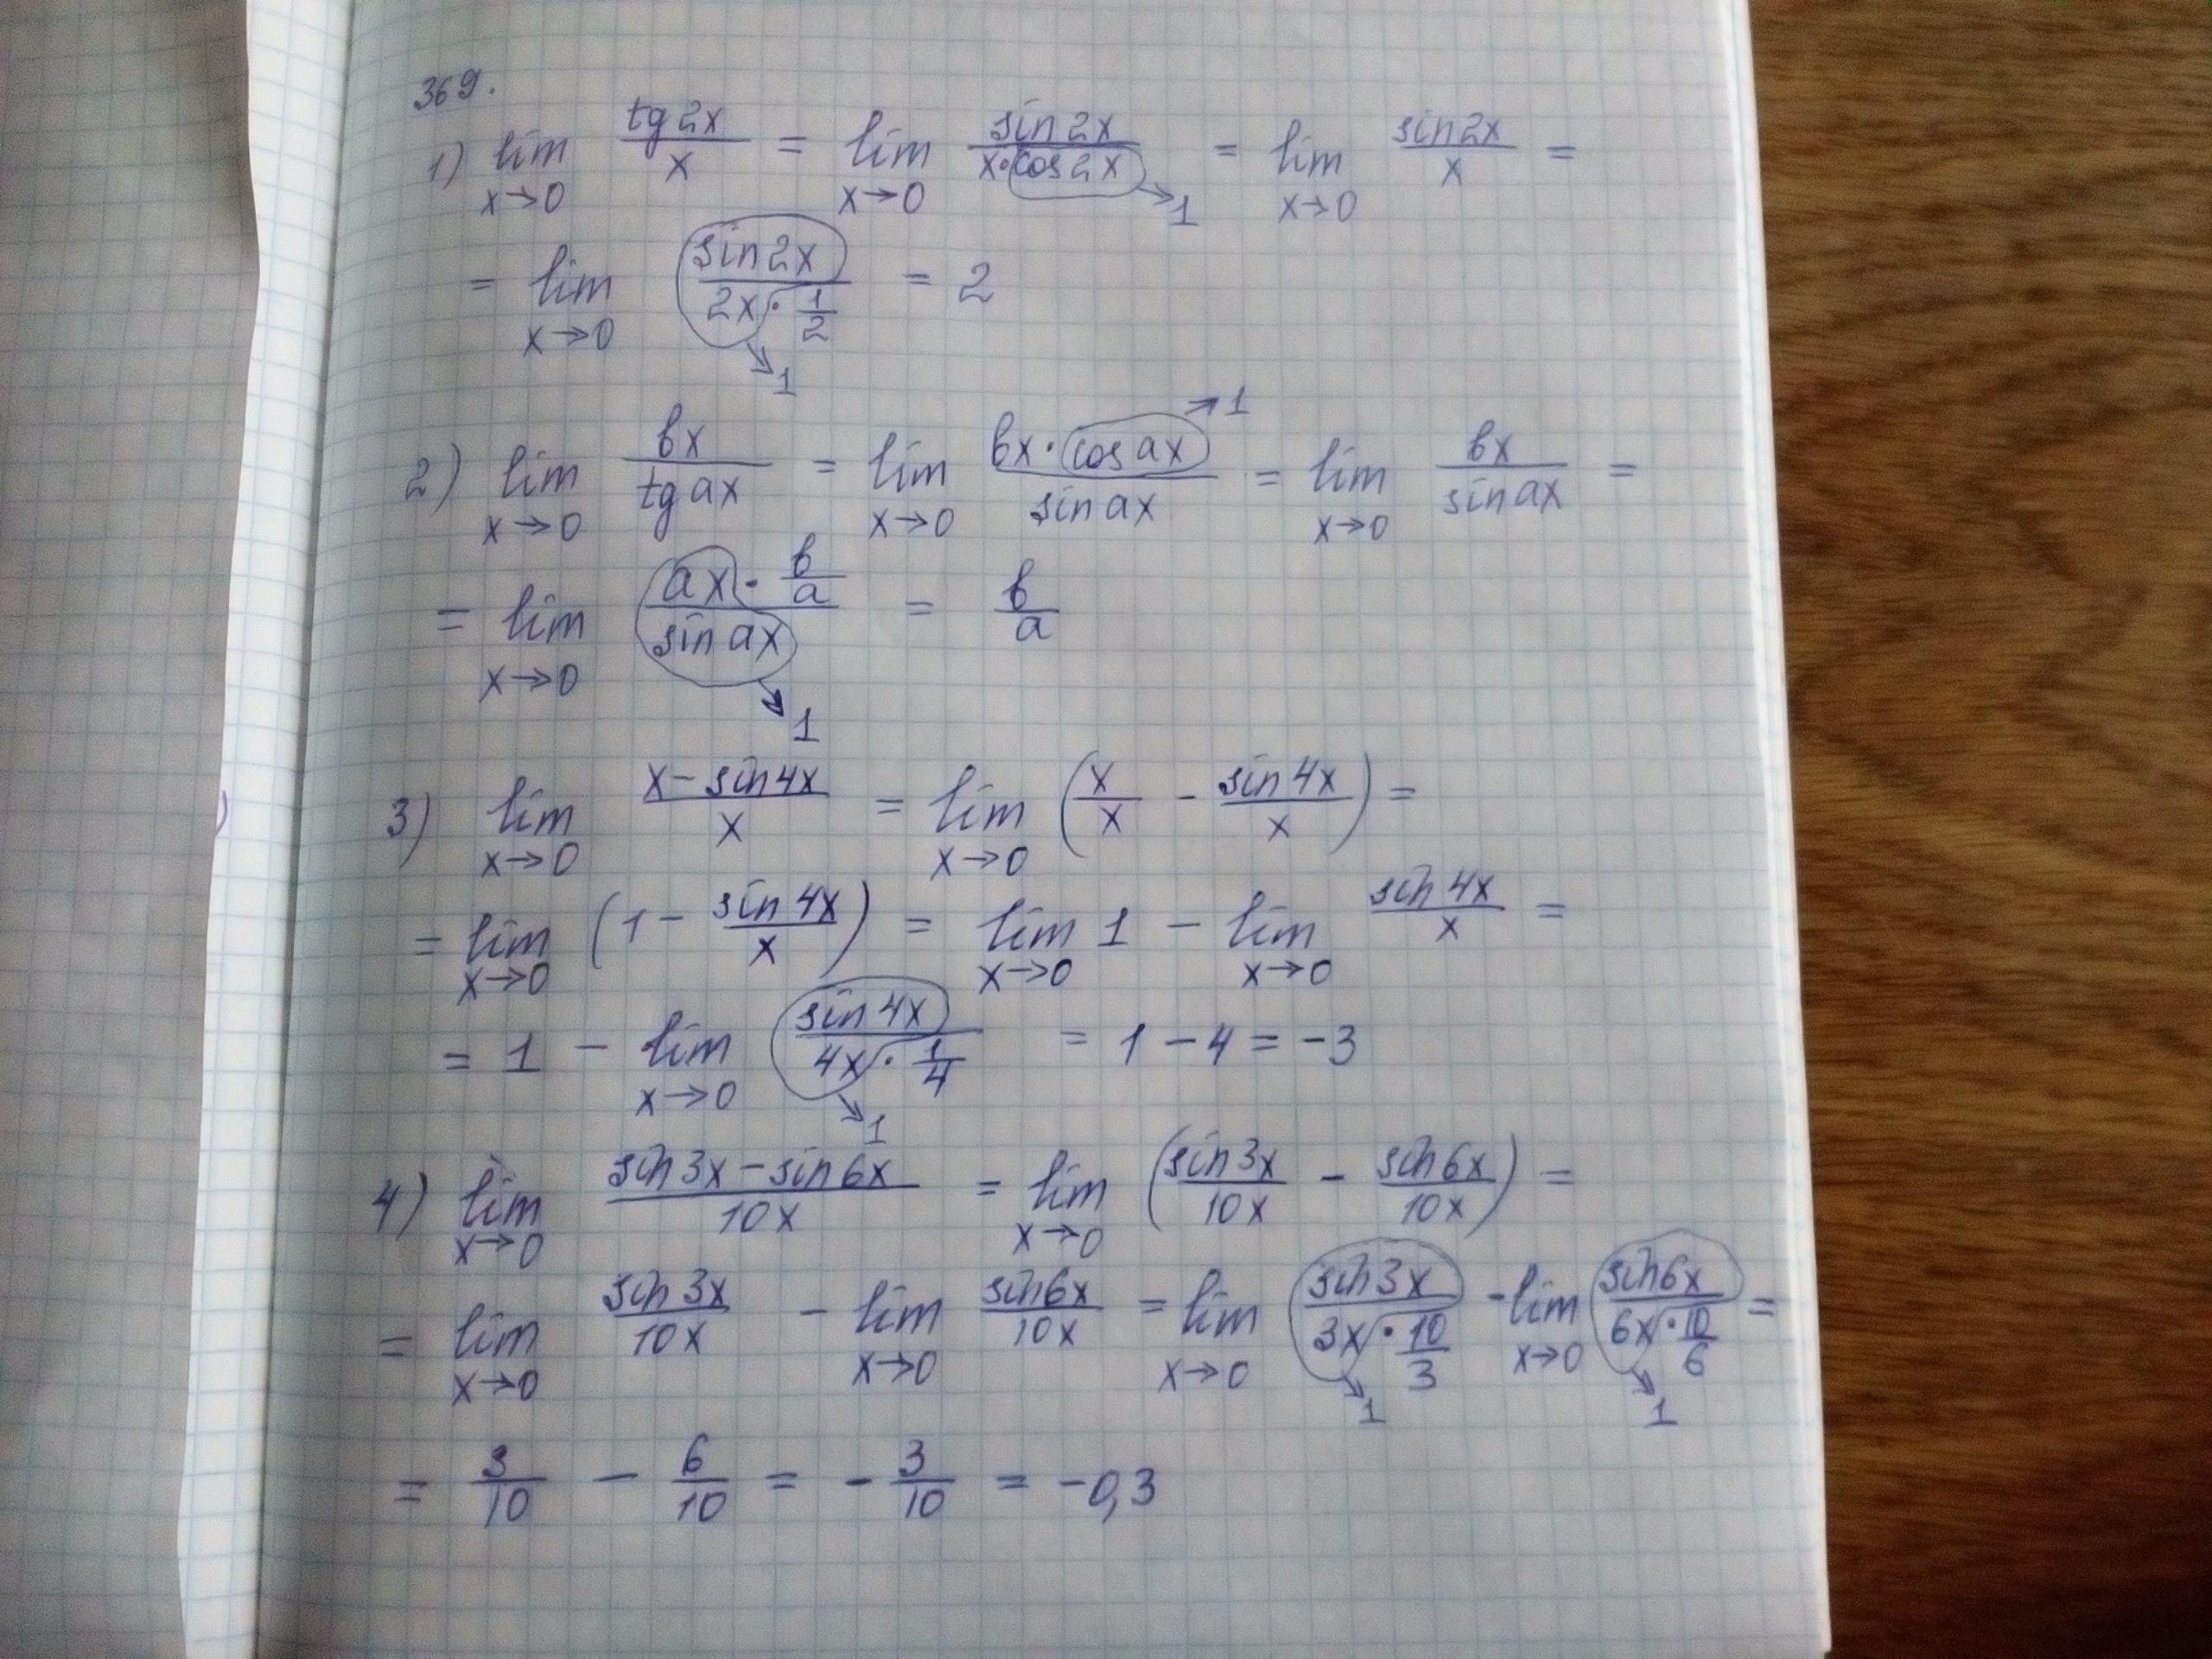 369.
1) lim x→0 tg2x/x = lim x→0 sin2x/(x·cos2x) →1 = lim x→0 sin2x/x =
= lim x→0 sin2x/(2x·1/2) →1 = 2
2) lim x→0 вx/tg ax = lim x→0 (вx·cos ax)/sin ax →1 = lim x→0 вx/sin ax =
= lim x→0 (ax·в/a)/sin ax →1 = в/a
3) lim x→0 (x-sin4x)/x = lim x→0 (x/x - sin4x/x) =
= lim x→0 (1 - sin4x/x) = lim x→0 1 - lim x→0 sin4x/x =
= 1 - lim x→0 sin4x/(4x·1/4) →1 = 1-4 = -3
4) lim x→0 (sin3x-sin6x)/10x = lim x→0 (sin3x/10x - sin6x/10x) =
= lim x→0 sin3x/10x - lim x→0 sin6x/10x = lim x→0 sin3x/(3x·10/3) →1 - lim x→0 sin6x/(6x·10/6) →1 =
= 3/10 - 6/10 = -3/10 = -0,3